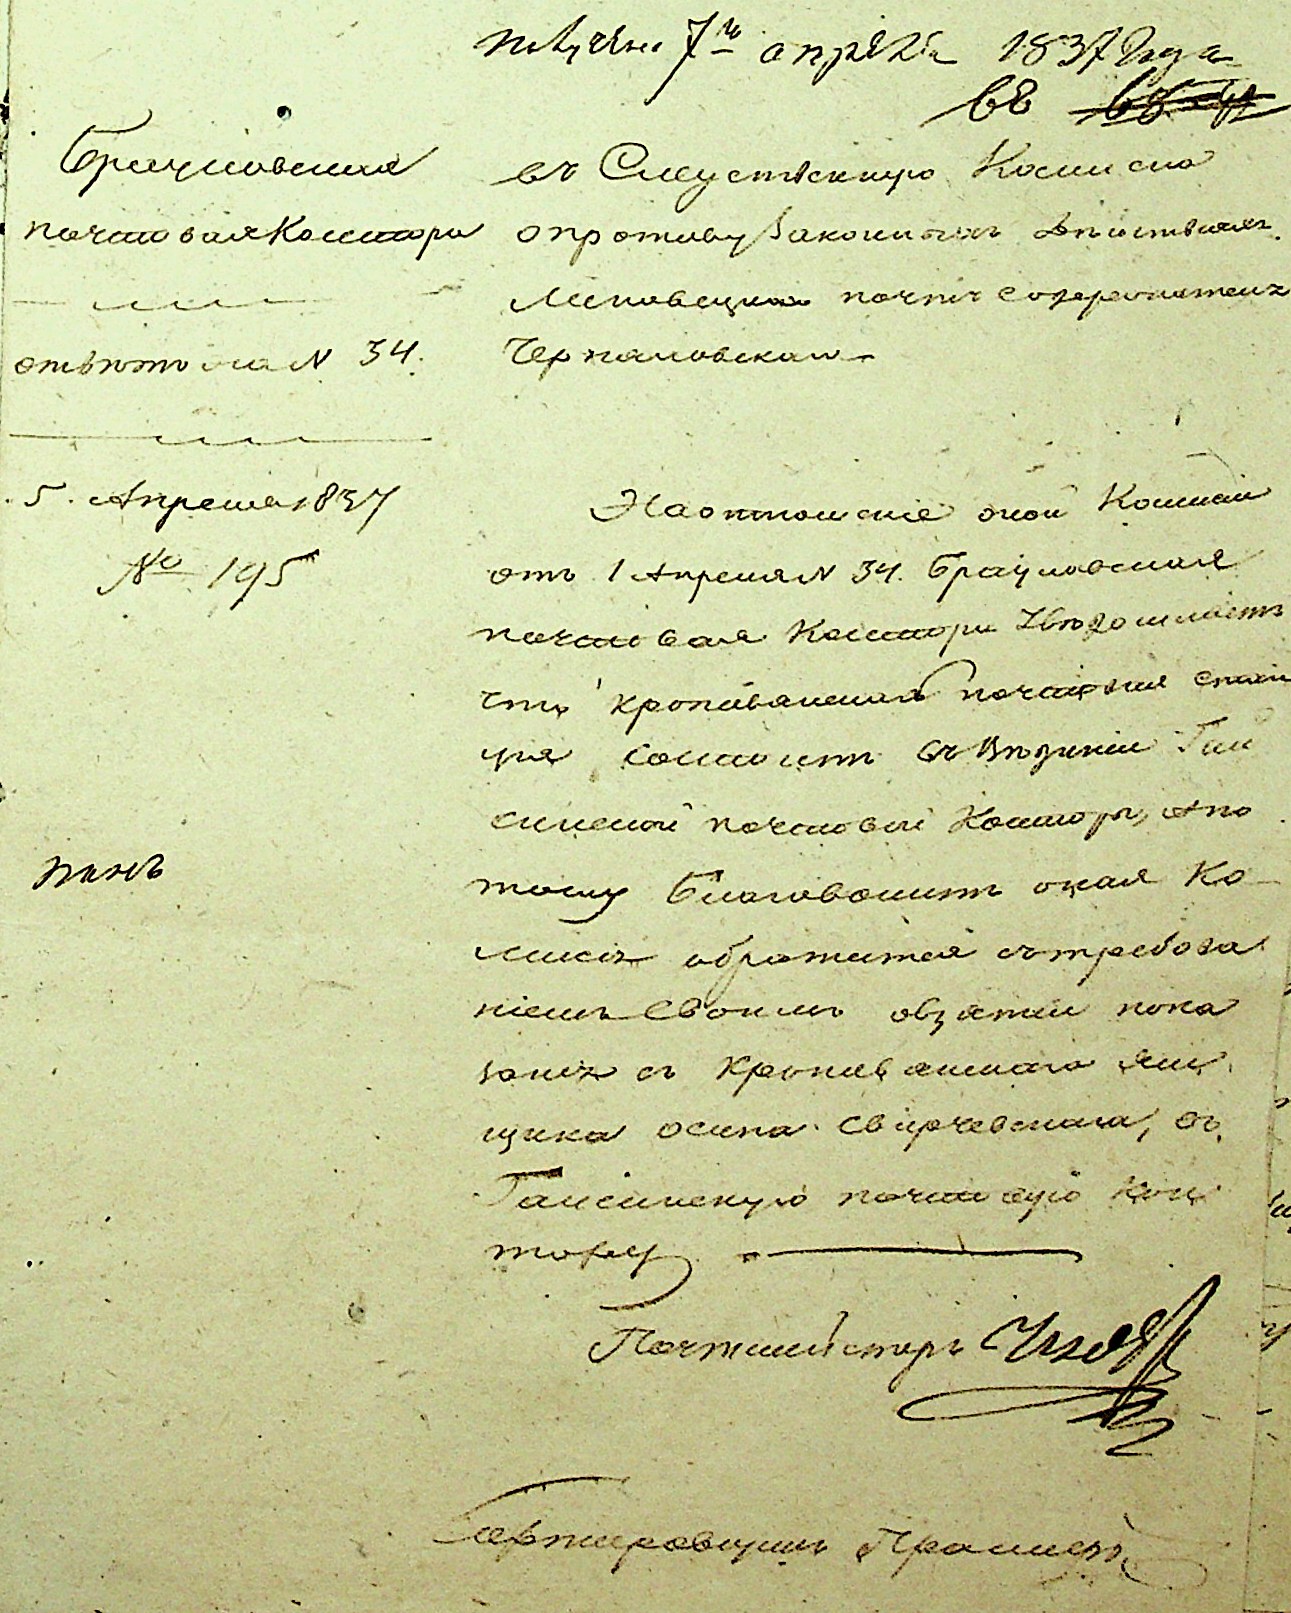 получено 7го апреля 1837 года
въ
Брацловская
почтовая Контора
отвѣтъ на N 34.
5. Апреля 1837
No 195
въ Следственную Комисию
о противузаконныхъ дѣйствіяхъ
почтъ содержателя
На отношеніе оной Комисіи
отъ 1 Апреля N 34. Брацловская
почтовая Контора Увѣдомляетъ
что кропивянская почтовая стан
ція состоитъ въ Вѣденіи Гай
синской почтовой Конторы, А по
тому Благоволитъ оная Ко
мисія обратится съ требова
ніемъ Своимъ о взятіи пока
занія съ Кропивянскаго ям
щика осипа Свирчевскаго, въ
Гайсинскую почтовую Кон
тору
Почтмейстеръ
Сортировщикъ